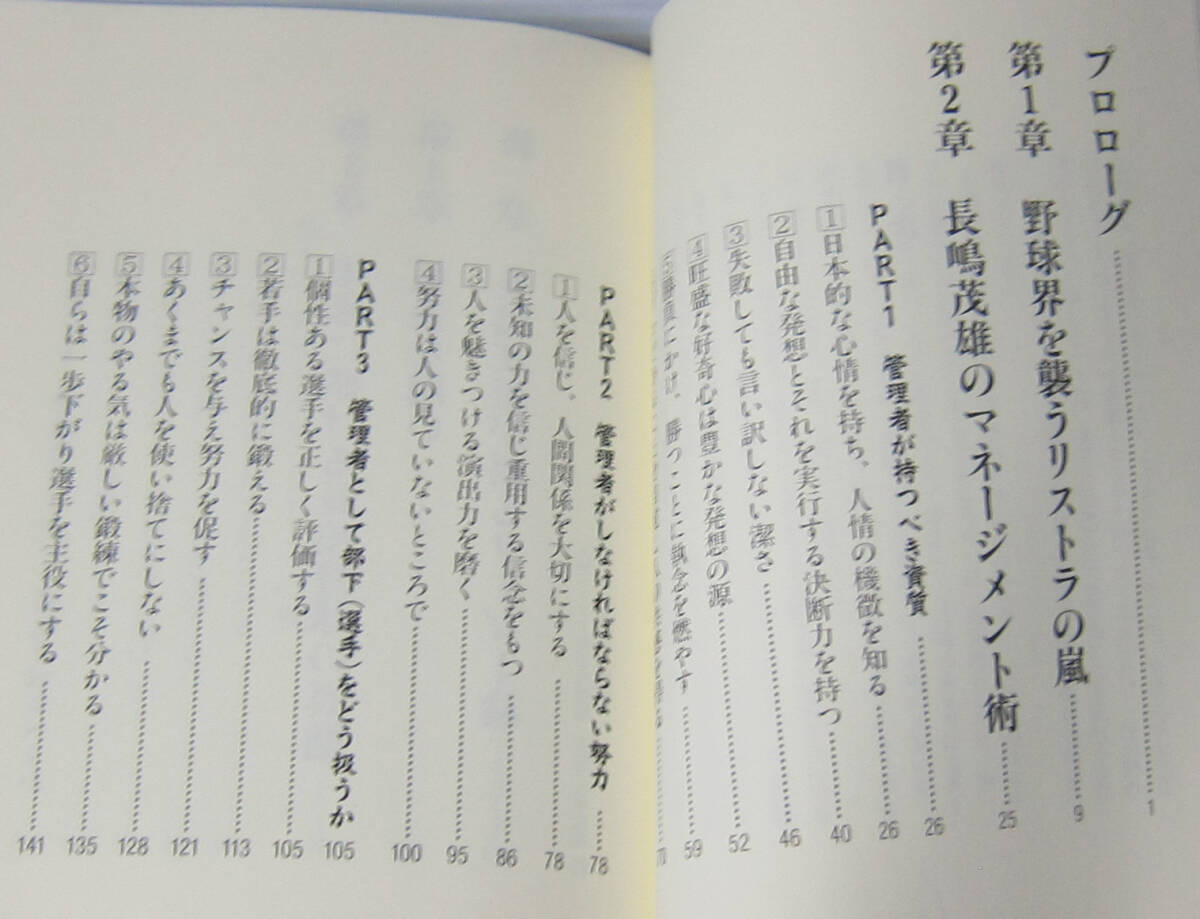 プロローグ……1
第1章 野球界を襲うリストラの嵐……9
第2章 長嶋茂雄のマネージメント術……25
PART1 管理者が持つべき資質……26
1 日本的な心情を持ち、人情の機微を知る……26
2 自由な発想とそれを実行する決断力を持つ……40
3 失敗しても言い訳しない潔さ……46
4 旺盛な好奇心は豊かな発想の源……52
5 勝負にかけ、勝つことに執念を燃やす……59
70
PART2 管理者がしなければならない努力……78
1 人を信じ、人間関係を大切にする……78
2 未知の力を信じ重用する信念をもつ……86
3 人を魅きつける演出力を磨く……95
4 努力は人の見ていないところで……100
PART3 管理者として部下(選手)をどう扱うか……105
1 個性ある選手を正しく評価する……105
2 若手は徹底的に鍛える……113
3 チャンスを与え努力を促す……121
4 あくまでも人を使い捨てにしない……128
5 本物のやる気は厳しい鍛練でこそ分かる……135
6 自らは一歩下がり選手を主役にする……141